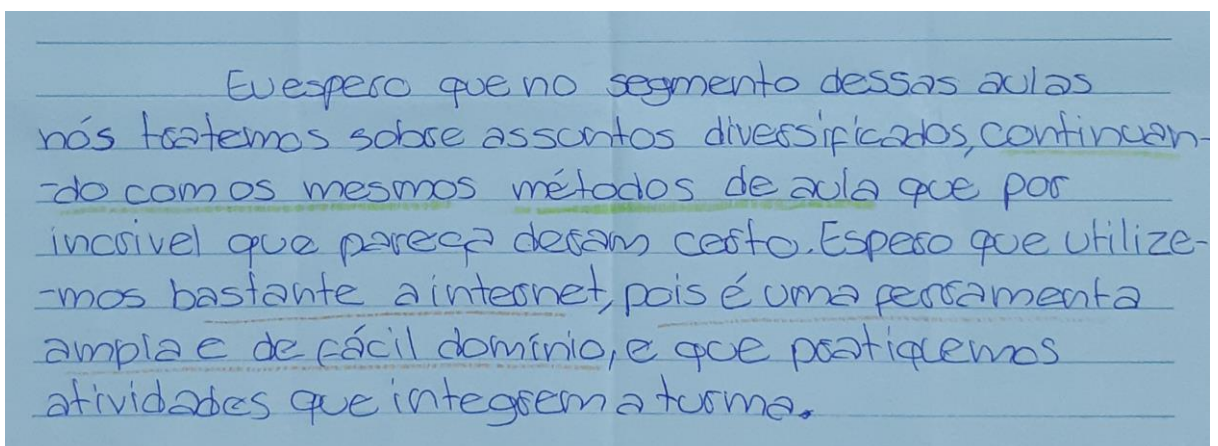 Eu espero que no segmento dessas aulas
nós tratemos sobre assuntos diversificados, continuan-
-do com os mesmos métodos de aula que por
incrivel que pareça deram certo. Espero que utilize-
-mos bastante a internet, pois é uma ferramenta
ampla e de fácil domínio, e que pratiquemos
atividades que integrem a turma.